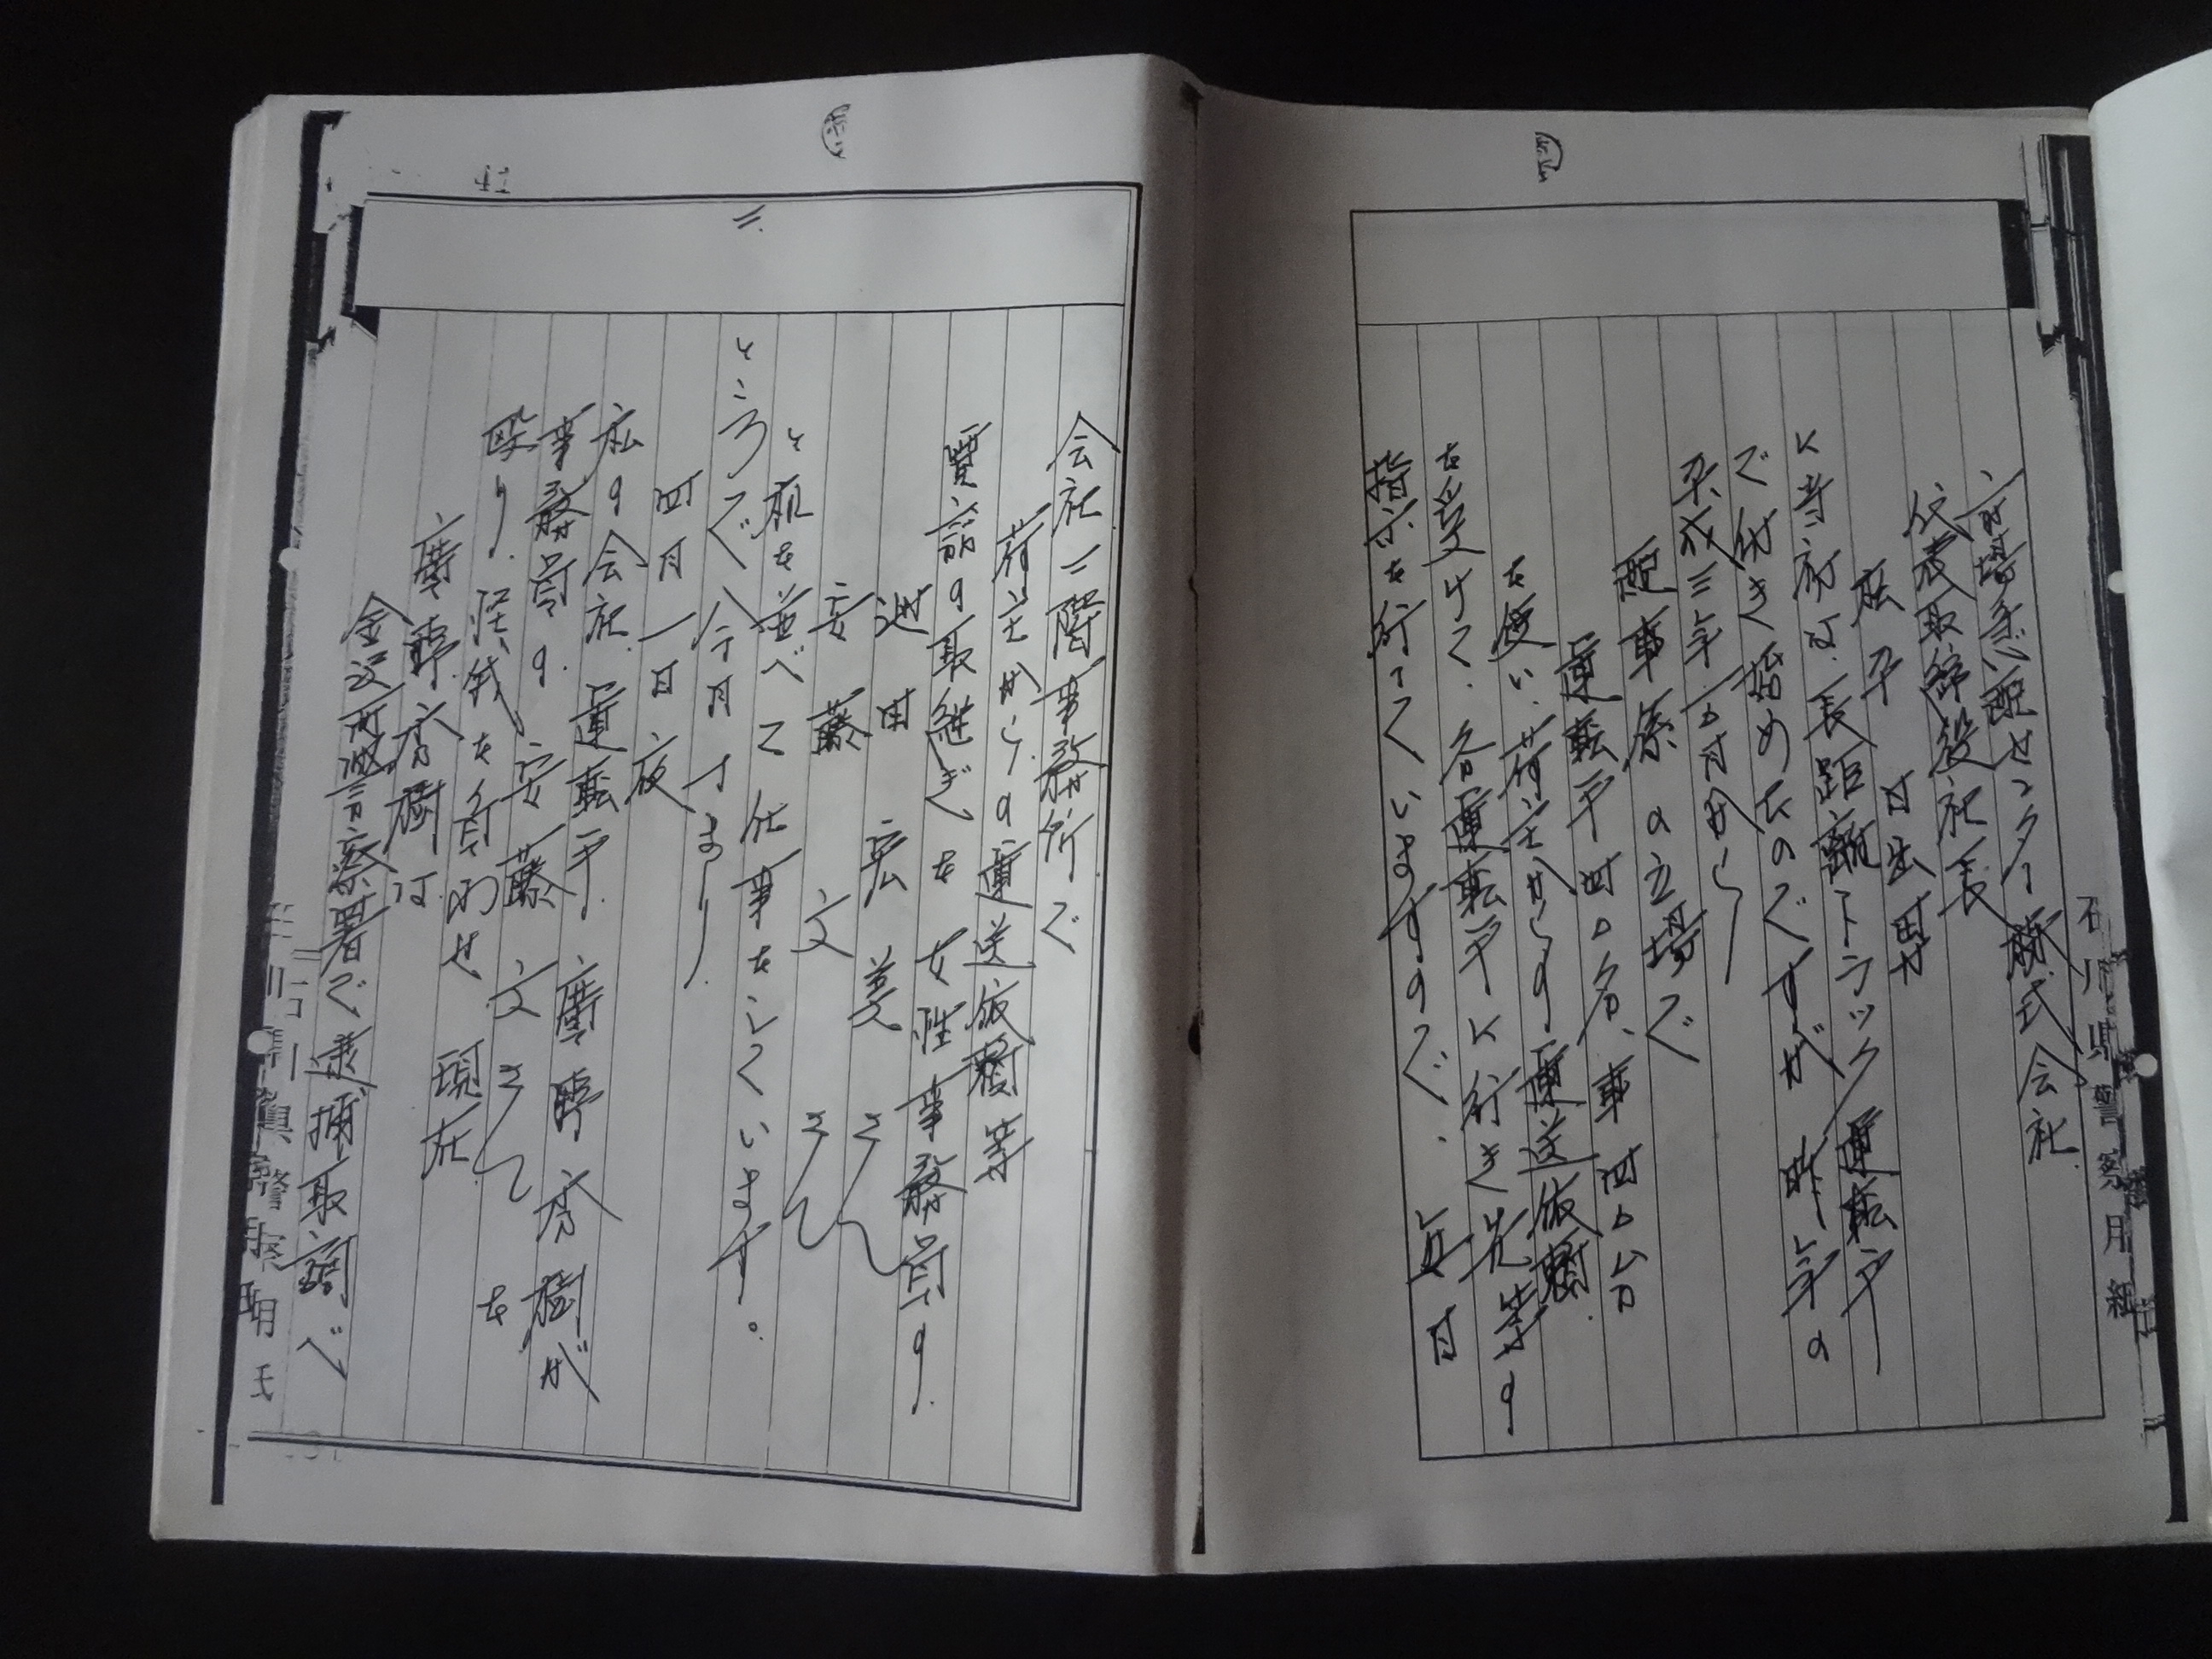 市場急配センター株式会社
代表取締役社長
松平日出男
に考動は、長距離トラック運転手
で付き始めたのですが昨年の
平成三年一〇月から
配車係の立場で
運転手四〇名、車四〇台
を使い、荷主からの運送依頼
を受けて、各運転手に行き先等の
指示を行っていますので、毎日
石川県警察用紙
会社二階事務所で
荷主から、の運送依頼等
電話の取継ぎを女性事務員の、
池田宏美さん
安藤文さん
と机を並べて仕事をしています。
二
ところで今月すなわち、
四月一日夜
私の会社、運転手、廣野秀樹が
事務員の、安藤文さんを
殴り、怪我を負わせ、現在
廣野秀樹は、
金沢西警察署で逮捕取調べ
石川県警察